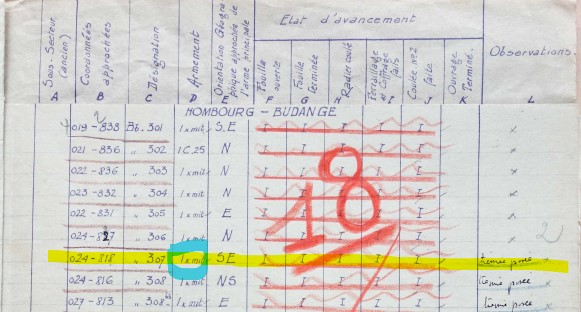 Etat d'avancement
Sous-Secteur (ancien) Coordonnées approchées Désignation Armement Orientation Géographique approchée de l'arme principale Fouille ouverte Fouille Terminée Radier coulé Ferraillage et Coffrage faits Coulée n°2 faite Ouvrage Terminé. Observations.
A B C D E F G H I J K L
HOMBOURG - BUDANGE
2
019 - 838 Bb. 301 1 x mit S.E I I I I I x
021 - 836 " 302 1 C.25 N I I I I I x
022 - 836 " 303 1 x mit N I I I I I x
023 - 832 " 304 1 x mit N I I I I I x
022 - 831 " 305 1 x mit E I I I I I x
024 - 827 " 306 1 x mit N I I I I I x
024 - 818 " 307 1 x mit SE I I I I I x
024 - 816 " 308 1 x mit NS I I I I I x
027 - 813 " 308 bis 1 x mit E I I I I I x
18
2